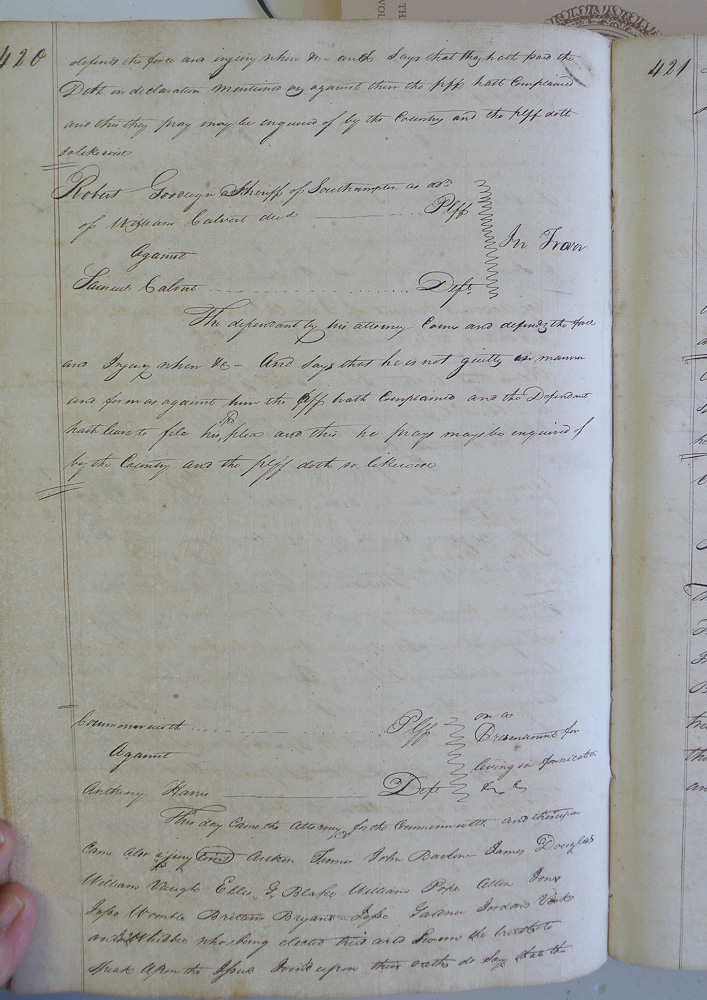 420
defends the force and injury when &c and Says that they hath paid the
Debt in declaration mentioned as against them the plff hath Complained
and this they pray may be enquired of by the Country and the plff doth
so likewise
Robert Goodwyn Sheriff of Southampton as adr
of William Calvert decd Plff
In Trover
Against
Samuel Calvert Deft.
The defendant by his attorney Comes and defends the force
and Injury when &c - And Says that he is not guilty in manner
and form as against him the plff hath Complained and the Defendant
hath leave to file his plea and this he prays may be enquired of
by the Country and the plff doth so likewise
Commonwealth Plff
on a
Presentment for
Against
living in fornication
Anthony Harris Deft
&c &c
This day Came the Attorney for the Commonwealth and thereupon
Came also a jury (towit) Turner John Barlow James Douglas
William Vaughn Ellis G. Blake Williams Pope Allen Jones
Jesse Womble Britain Bryant Jesse Jordan
and who being elected tried and Sworn the truth to
Speak Upon the Issue Joined upon their oaths do Say that the
421